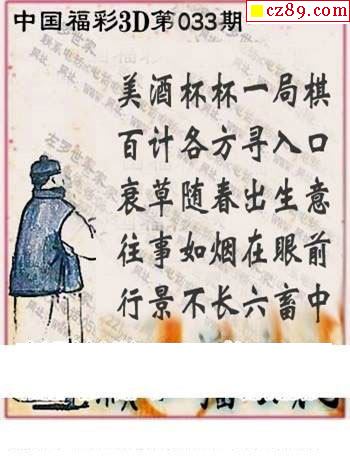 cz89.com
中国福彩3D第033期
美酒杯杯一局棋
百计各方寻入口
衰草随春出生意
往事如烟在眼前
行景不长六畜中